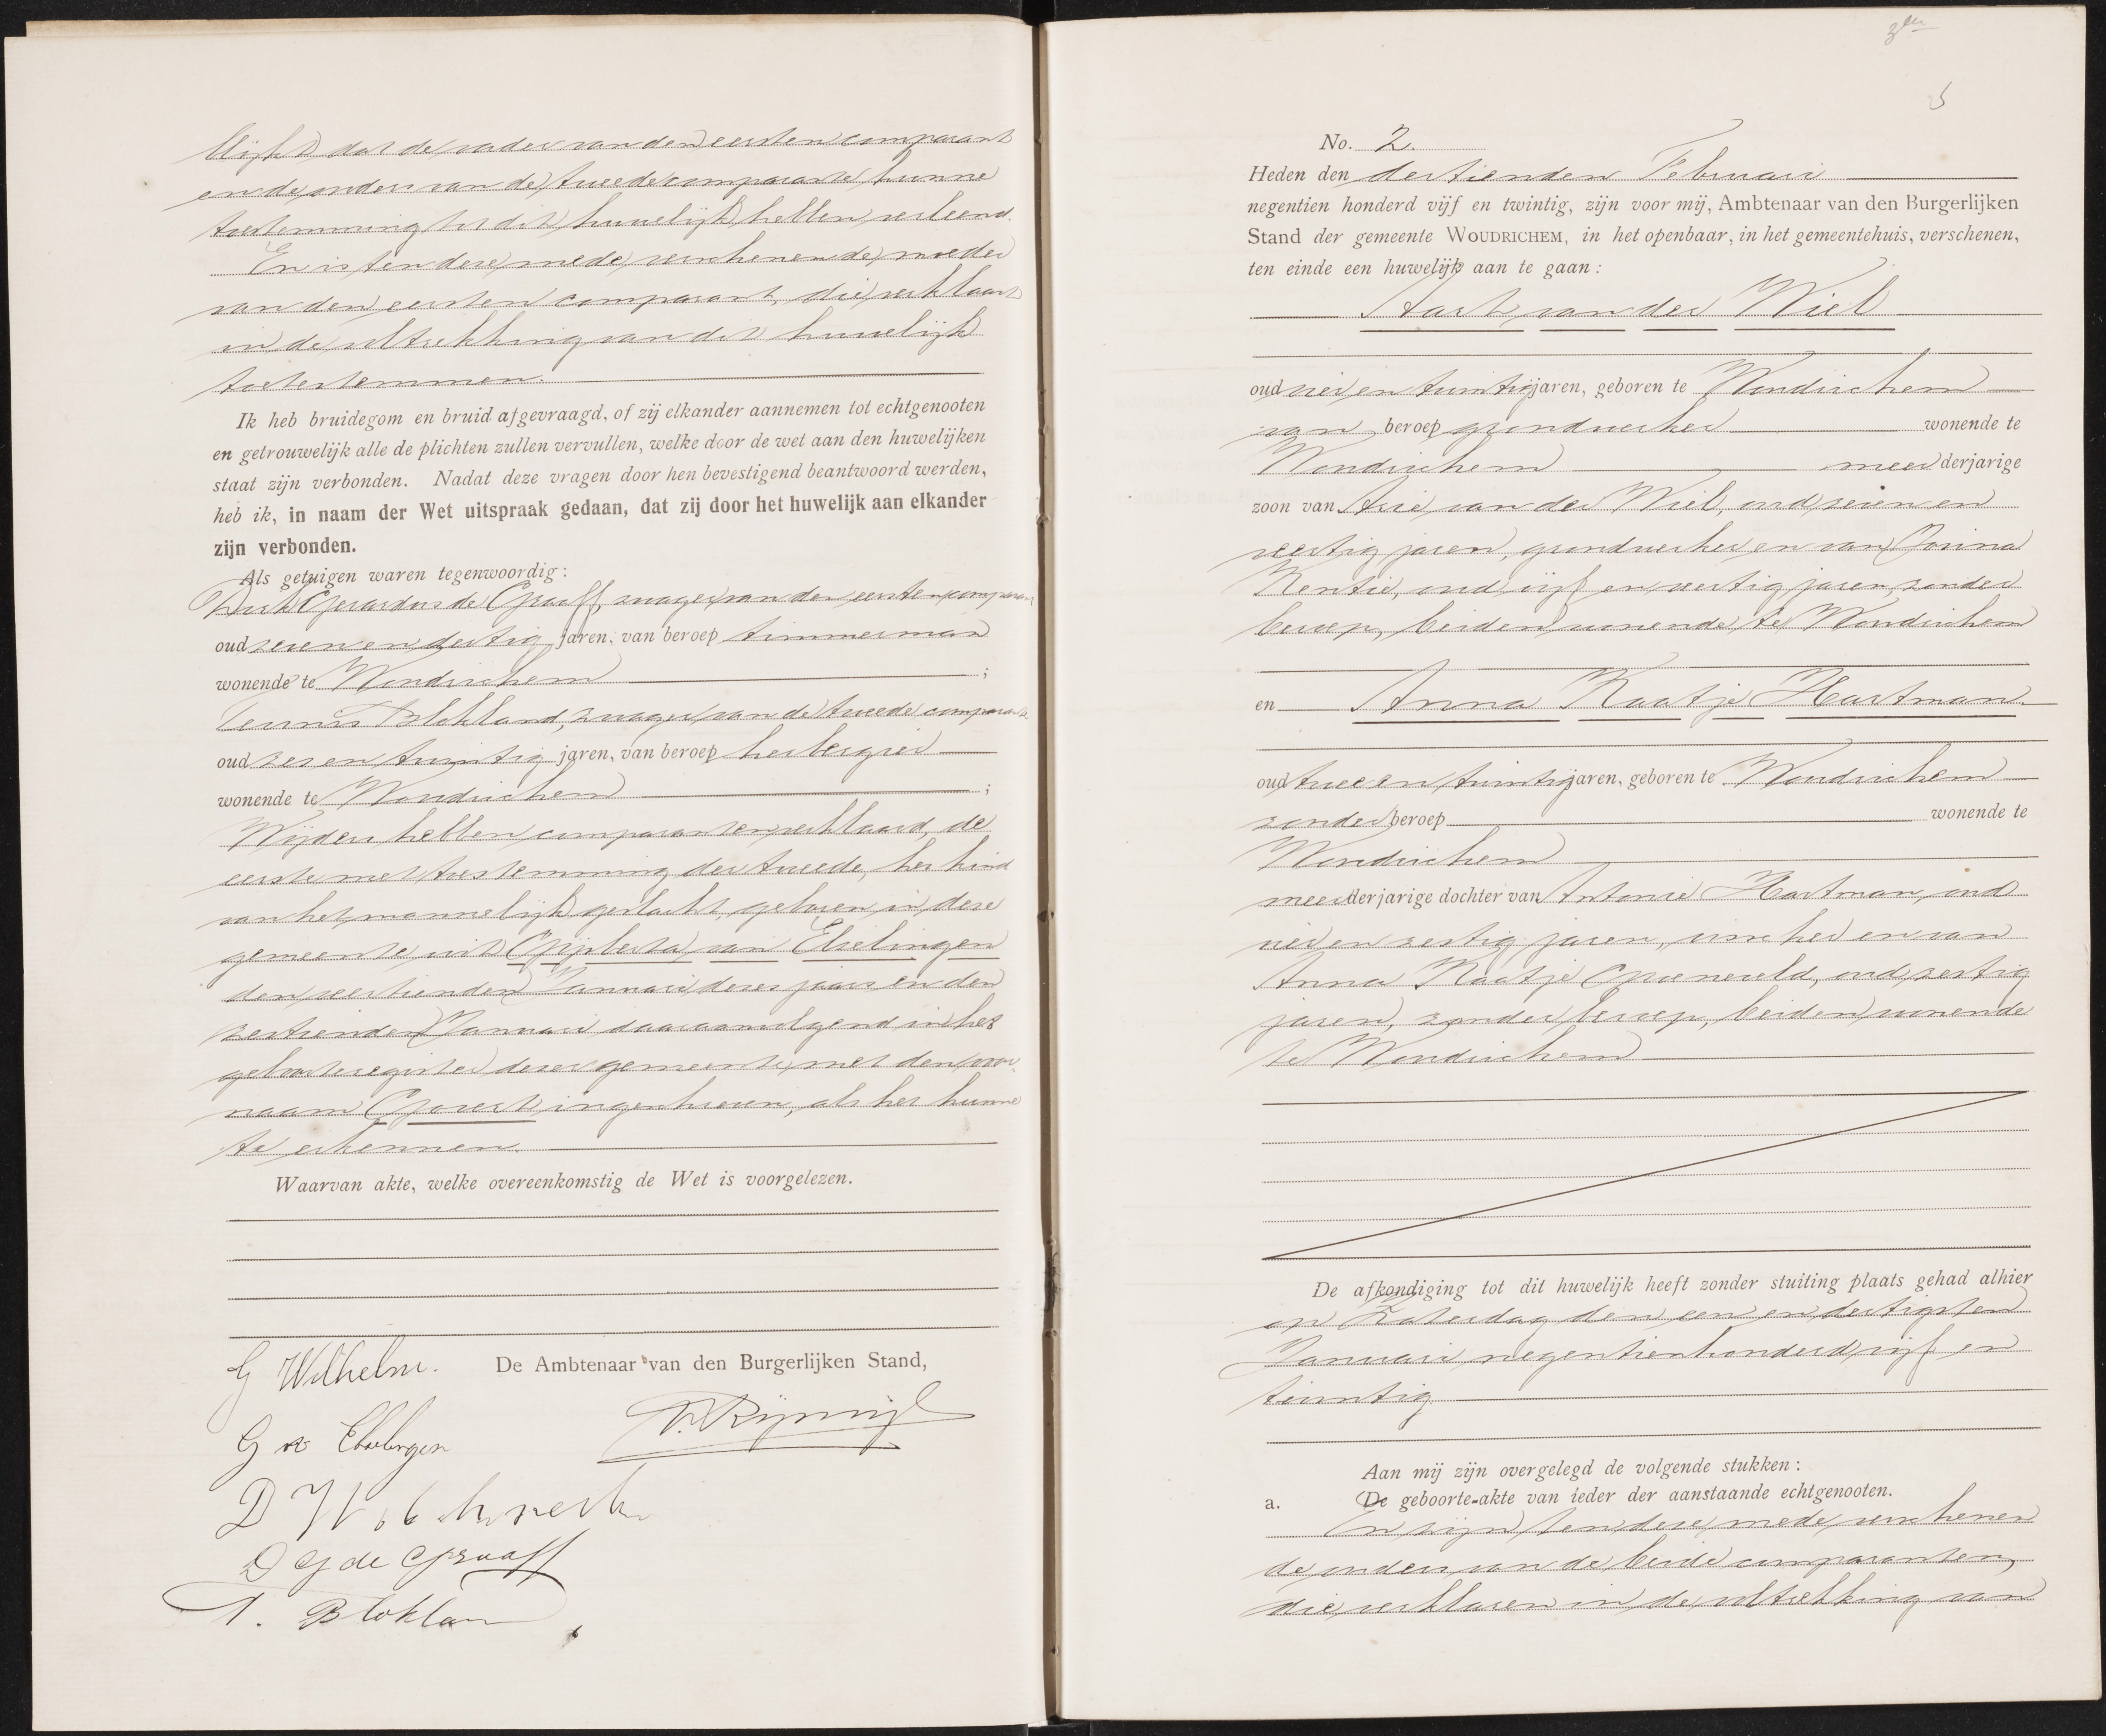 blijkt dat de vader van den eersten comparant
en de ouders van de tweede comparante hunne
toestemming tot dit huwelijk hebben verleend.
En is ten deze mede verschenen de moeder
van den eersten comparant, die verklaart
in de voltrekking van dit huwelijk
toetestemmen.
Ik heb bruidegom en bruid afgevraagd, of zij elkander aannemen tot echtgenooten
en getrouwelijk alle de plichten zullen vervullen, welke door de wet aan den huwelijken
staat zijn verbonden. Nadat deze vragen door hen bevestigend beantwoord werden,
heb ik, in naam der Wet uitspraak gedaan, dat zij door het huwelijk aan elkander
zijn verbonden.
Als getuigen waren tegenwoordig:
Dirk Gerardus de Graaff, zwager van den eersten comparant
oud zeven en dertig jaren, van beroep timmerman
wonende te Woudrichem ;
Teunis Blokland, zwager van de tweede comparante
oud zes en twintig jaren, van beroep herbergier
wonende te Woudrichem ;
Wijders hebben comparanten verklaard, de
eerste met toestemming der tweede, het kind
van het mannelijk geslacht, geboren in deze
gemeente uit Gijsberta van Elzelingen
den veertienden Januari dezes jaars en den
zestienden Januari daaraanvolgend in het
geboorteregister dezer gemeente met den voor-
naam Govert ingeschreven, als het hunne
te erkennen.
Waarvan akte, welke overeenkomstig de Wet is voorgelezen.
G Wilhelm. De Ambtenaar van den Burgerlijken Stand,
G v
D
D G de Graaff
T. Blokland
3de
5
No. 2.
Heden den dertienden Februari
negentien honderd vijf en twintig, zijn voor mij, Ambtenaar van den Burgerlijken
Stand der gemeente WOUDRICHEM, in het openbaar, in het gemeentehuis, verschenen,
ten einde een huwelijk aan te gaan:
Aart van der Wiel
oud vier en twintig jaren, geboren te Woudrichem
van beroep grondwerker wonende te
Woudrichem meerderjarige
zoon van Arie van der Wiel, oud zeven en
veertig jaren, grondwerker en van Corina
Rentie, oud vijf en veertig jaren, zonder
beroep, beiden wonende te Woudrichem
en Anna Kaatje Hartman.
oud twee en twintig jaren, geboren te Woudrichem
zonder beroep wonende te
Woudrichem
meerderjarige dochter van Antonie Hartman, oud
vier en zestig jaren, visscher en van
Anna Kaatje Groeneveld, oud zestig
jaren, zonder beroep, beiden wonende
te Woudrichem
De afkondiging tot dit huwelijk heeft zonder stuiting plaats gehad alhier
op Zaterdag den een en dertigsten
Januari negentienhonderd vijf en
twintig
Aan mij zijn overgelegd de volgende stukken:
a. De geboorte-akte van ieder der aanstaande echtgenooten.
En zijn ten deze mede verschenen
de ouders van de beide comparanten,
die verklaren in de voltrekking van